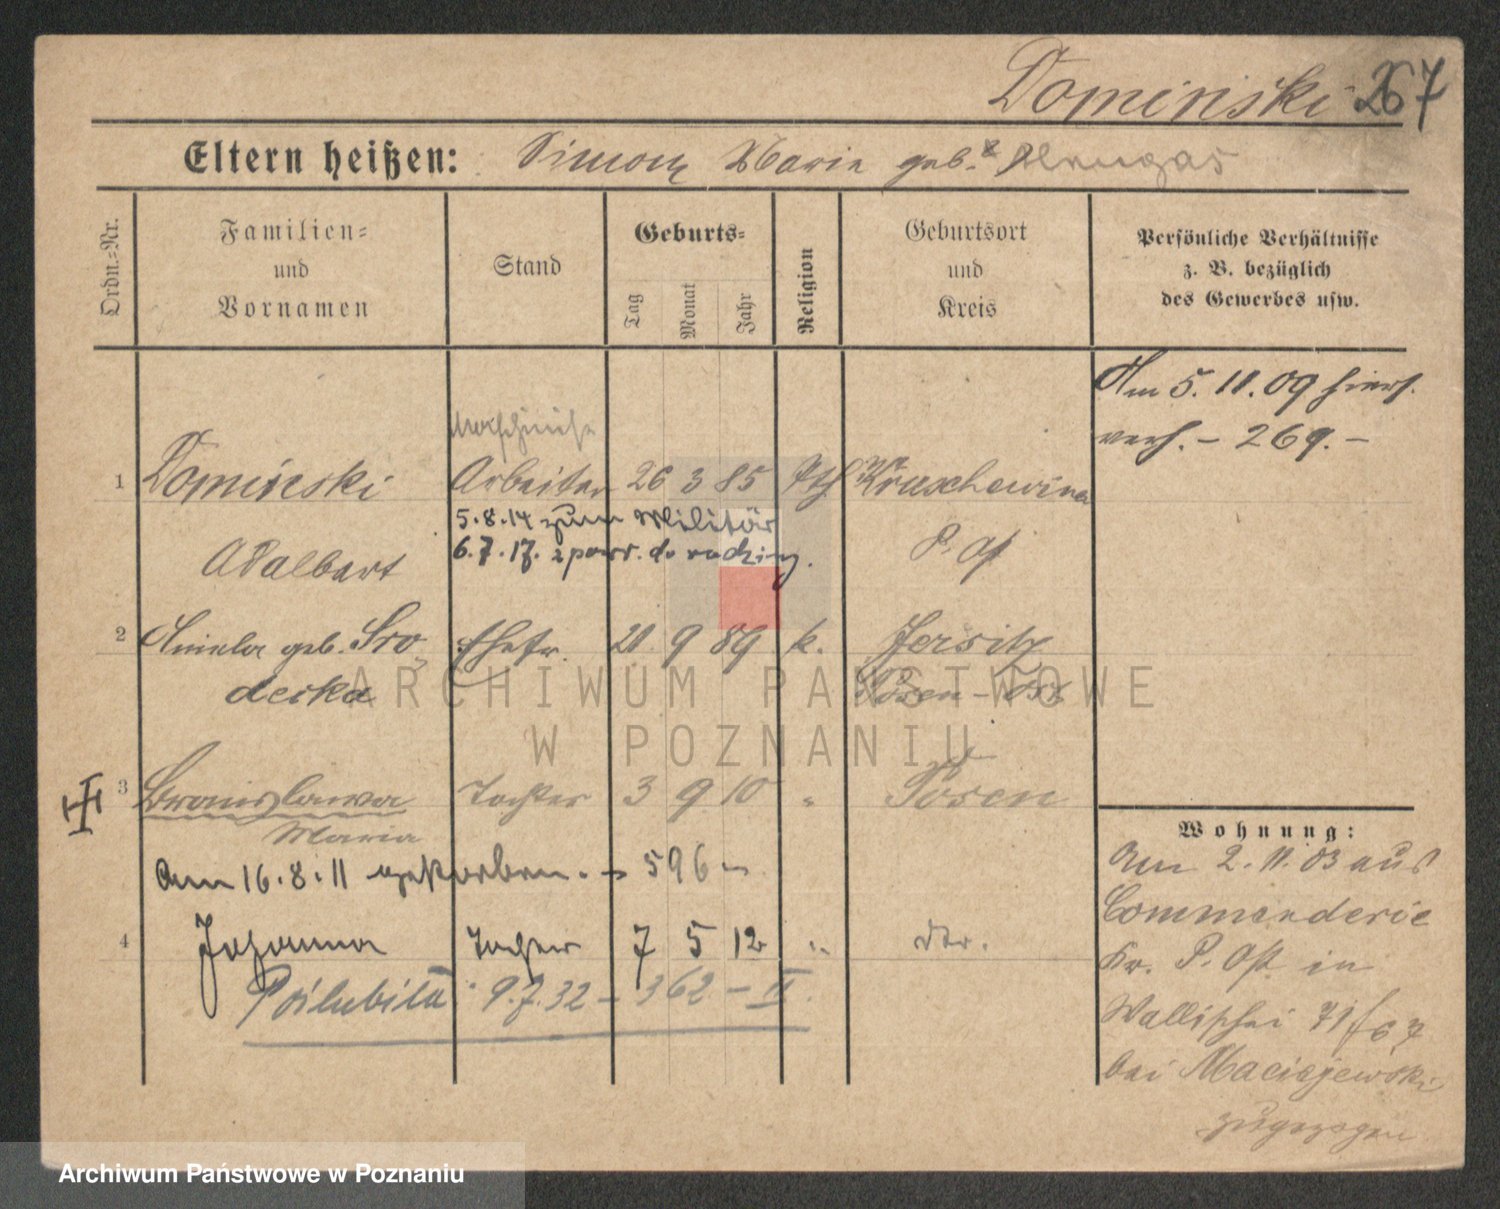 Dominski 267
Eltern heißen: Simon Marie geb.
Ordn.-Nr.
Familien-
und
Vornamen
Stand
Geburts-
Tag
Monat
Jahr
Religion
Geburtsort
und
Kreis
Persönliche Verhältnisse
z. B. bezüglich
des Gewerbes usw.
Am 5. 11. 09 hiers.
verh. – 269. –
Maschinist
1 Dominski Arbeiter 26 3 85 kth Kruschewina
5.8.14 zum Militär
6.7.17. z powr. do rodziny.
Adalbert P. Ost
2 Aniela geb. Sro Ehefr. 21 9 89 k. Jersitz
decka Posen – Ost
3 Bronislawa Tochter 3 9 10 " Posen
Maria
Am 16.8.11 gestorben. – 596 –
4 Johanna Tochter 7 5 12 " dto.
Poślubiła 9.7.32 – 362 – II.
Wohnung:
Am 2. 11. 03 aus
Commenderie
Kr. P. Ost in
Wallischei 71
bei Maciejewski
zugezogen
ARCHIWUM PAŃSTWOWE
W POZNANIU
Archiwum Państwowe w Poznaniu